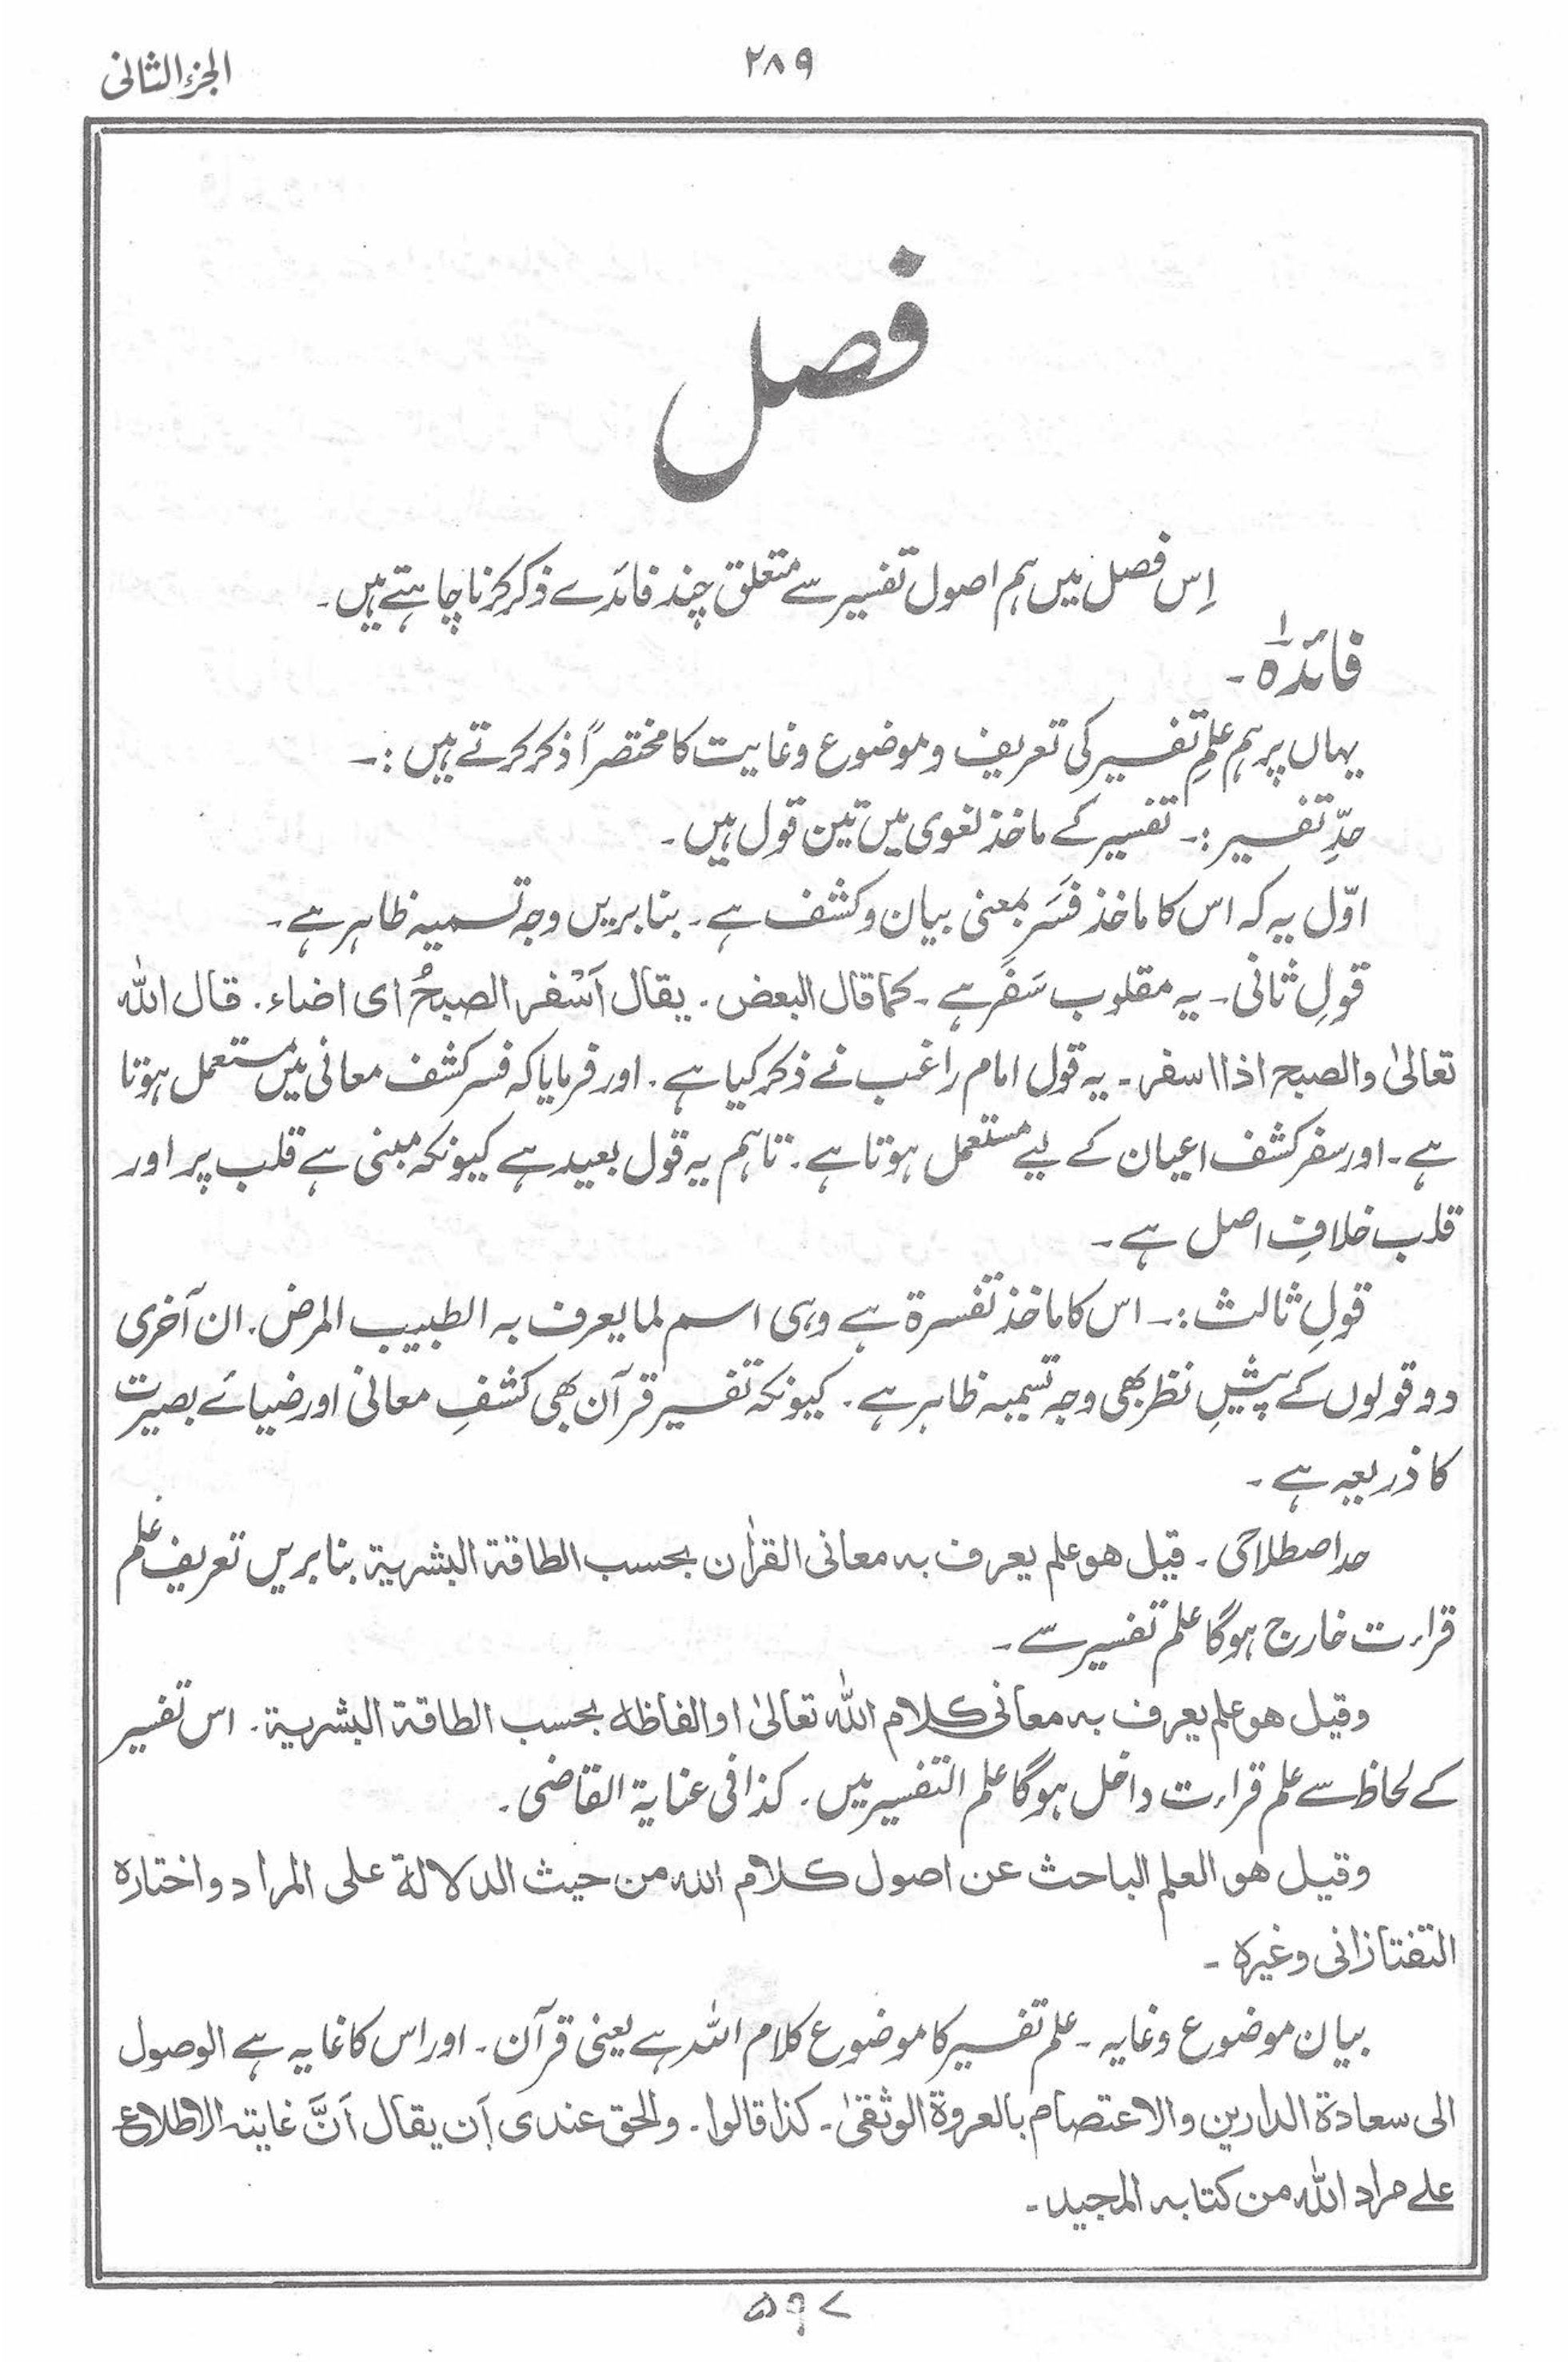 ۲۸۹
الجزء الثانی
فصل
اِس فصل میں ہم اصول تفسیر سے متعلق چند فائدے ذکر کرنا چاہتے ہیں۔
فائدہ ۱۔
یہاں پر ہم علمِ تفسیر کی تعریف و موضوع و غایت کا مختصراً ذکر کرتے ہیں :۔
حدِّ تفسیر :۔ تفسیر کے ماخذ لغوی میں تین قول ہیں۔
اوّل یہ کہ اس کا ماخذ فَسَر بمعنی بیان و کشف ہے۔ بنا بریں وجہ تسمیہ ظاہر ہے۔
قولِ ثانی۔ یہ مقلوب سَفَر ہے۔ کما قال البعض۔ یقال اَسْفر الصبحُ ای اضاء۔ قال اللہ
تعالیٰ والصبح اذا اسفر۔ یہ قول امام راغب نے ذکر کیا ہے۔ اور فرمایا کہ فسر کشف معانی میں مستعمل ہوتا
ہے۔ اور سفر کشف اعیان کے لیے مستعمل ہوتا ہے۔ تاہم یہ قول بعید ہے کیونکہ مبنی ہے قلب پر اور
قلب خلافِ اصل ہے۔
قولِ ثالث :۔ اس کا ماخذ تفسرة ہے وہی اسم لما یعرف بہ الطبیب المرض۔ ان آخری
دو قولوں کے پیشِ نظر بھی وجہ تسمیہ ظاہر ہے۔ کیونکہ تفسیر قرآن بھی کشفِ معانی اور ضیائے بصیرت
کا ذریعہ ہے۔
حد اصطلاحی۔ قیل ھو علم یعرف بہ معانی القراٰن بحسب الطاقة البشریة بنا بریں تعریف علم
قراءت خارج ہوگا علم تفسیر سے۔
وقیل ھو علم یعرف بہ معانی کلام اللہ تعالیٰ او الفاظہ بحسب الطاقة البشریة۔ اس تفسیر
کے لحاظ سے علم قراءت داخل ہوگا علم التفسیر میں۔ کذا فی عنایة القاضی۔
وقیل ھو العلم الباحث عن اصول کلام اللہ من حیث الدلالة علی المراد واختارہ
التفتازانی وغیرہ۔
بیان موضوع و غایہ۔ علم تفسیر کا موضوع کلام اللہ ہے یعنی قرآن۔ اور اس کا غایہ ہے الوصول
الی سعادة الدارین والاعتصام بالعروة الوثقیٰ۔ کذا قالوا۔ والحق عندی اَن یقال اَنَّ غایتہ الاطلاع
علے مراد اللہ من کتابہ المجید۔
۵۹۷